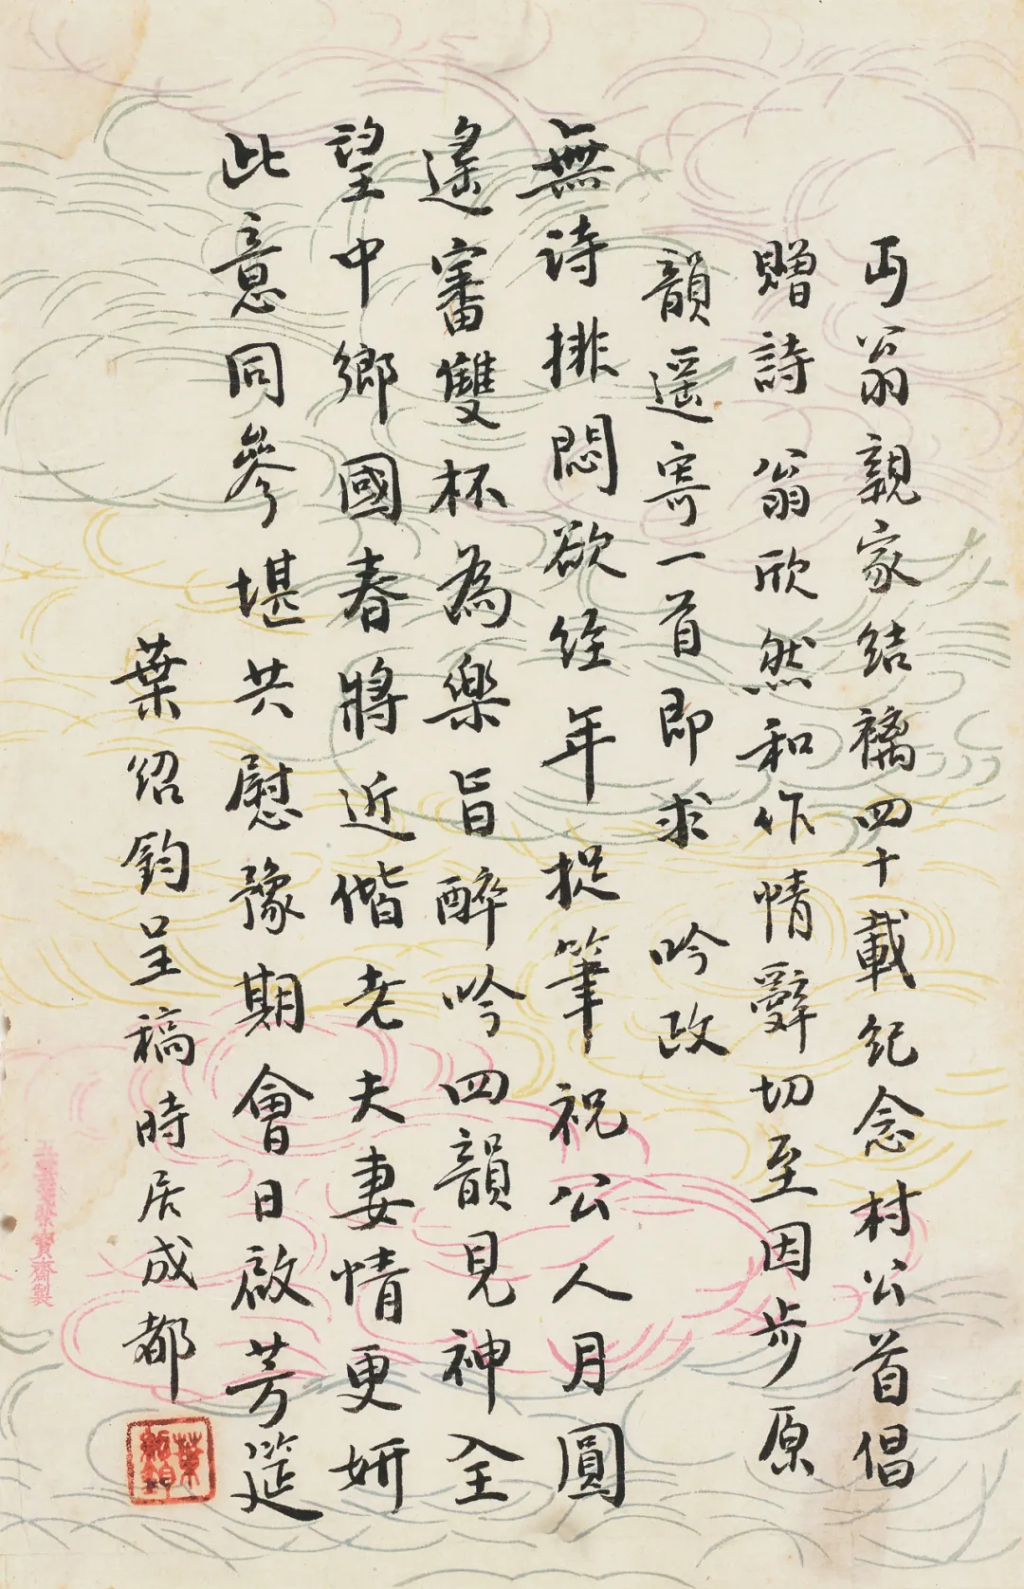 丏翁親家結褵四十載紀念村公首倡
贈詩翁欣然和作情辭切至因步原
韻遥寄一首即求 吟政
無詩排悶欲經年捉筆祝公人月圓
遙審雙杯為樂旨醉吟四韻見神全
望中鄉國春將近偕老夫妻情更妍
此意同參堪共慰豫期會日啟芳筵
葉紹鈞呈稿時居成都
葉紹鈞
榮寶齋製